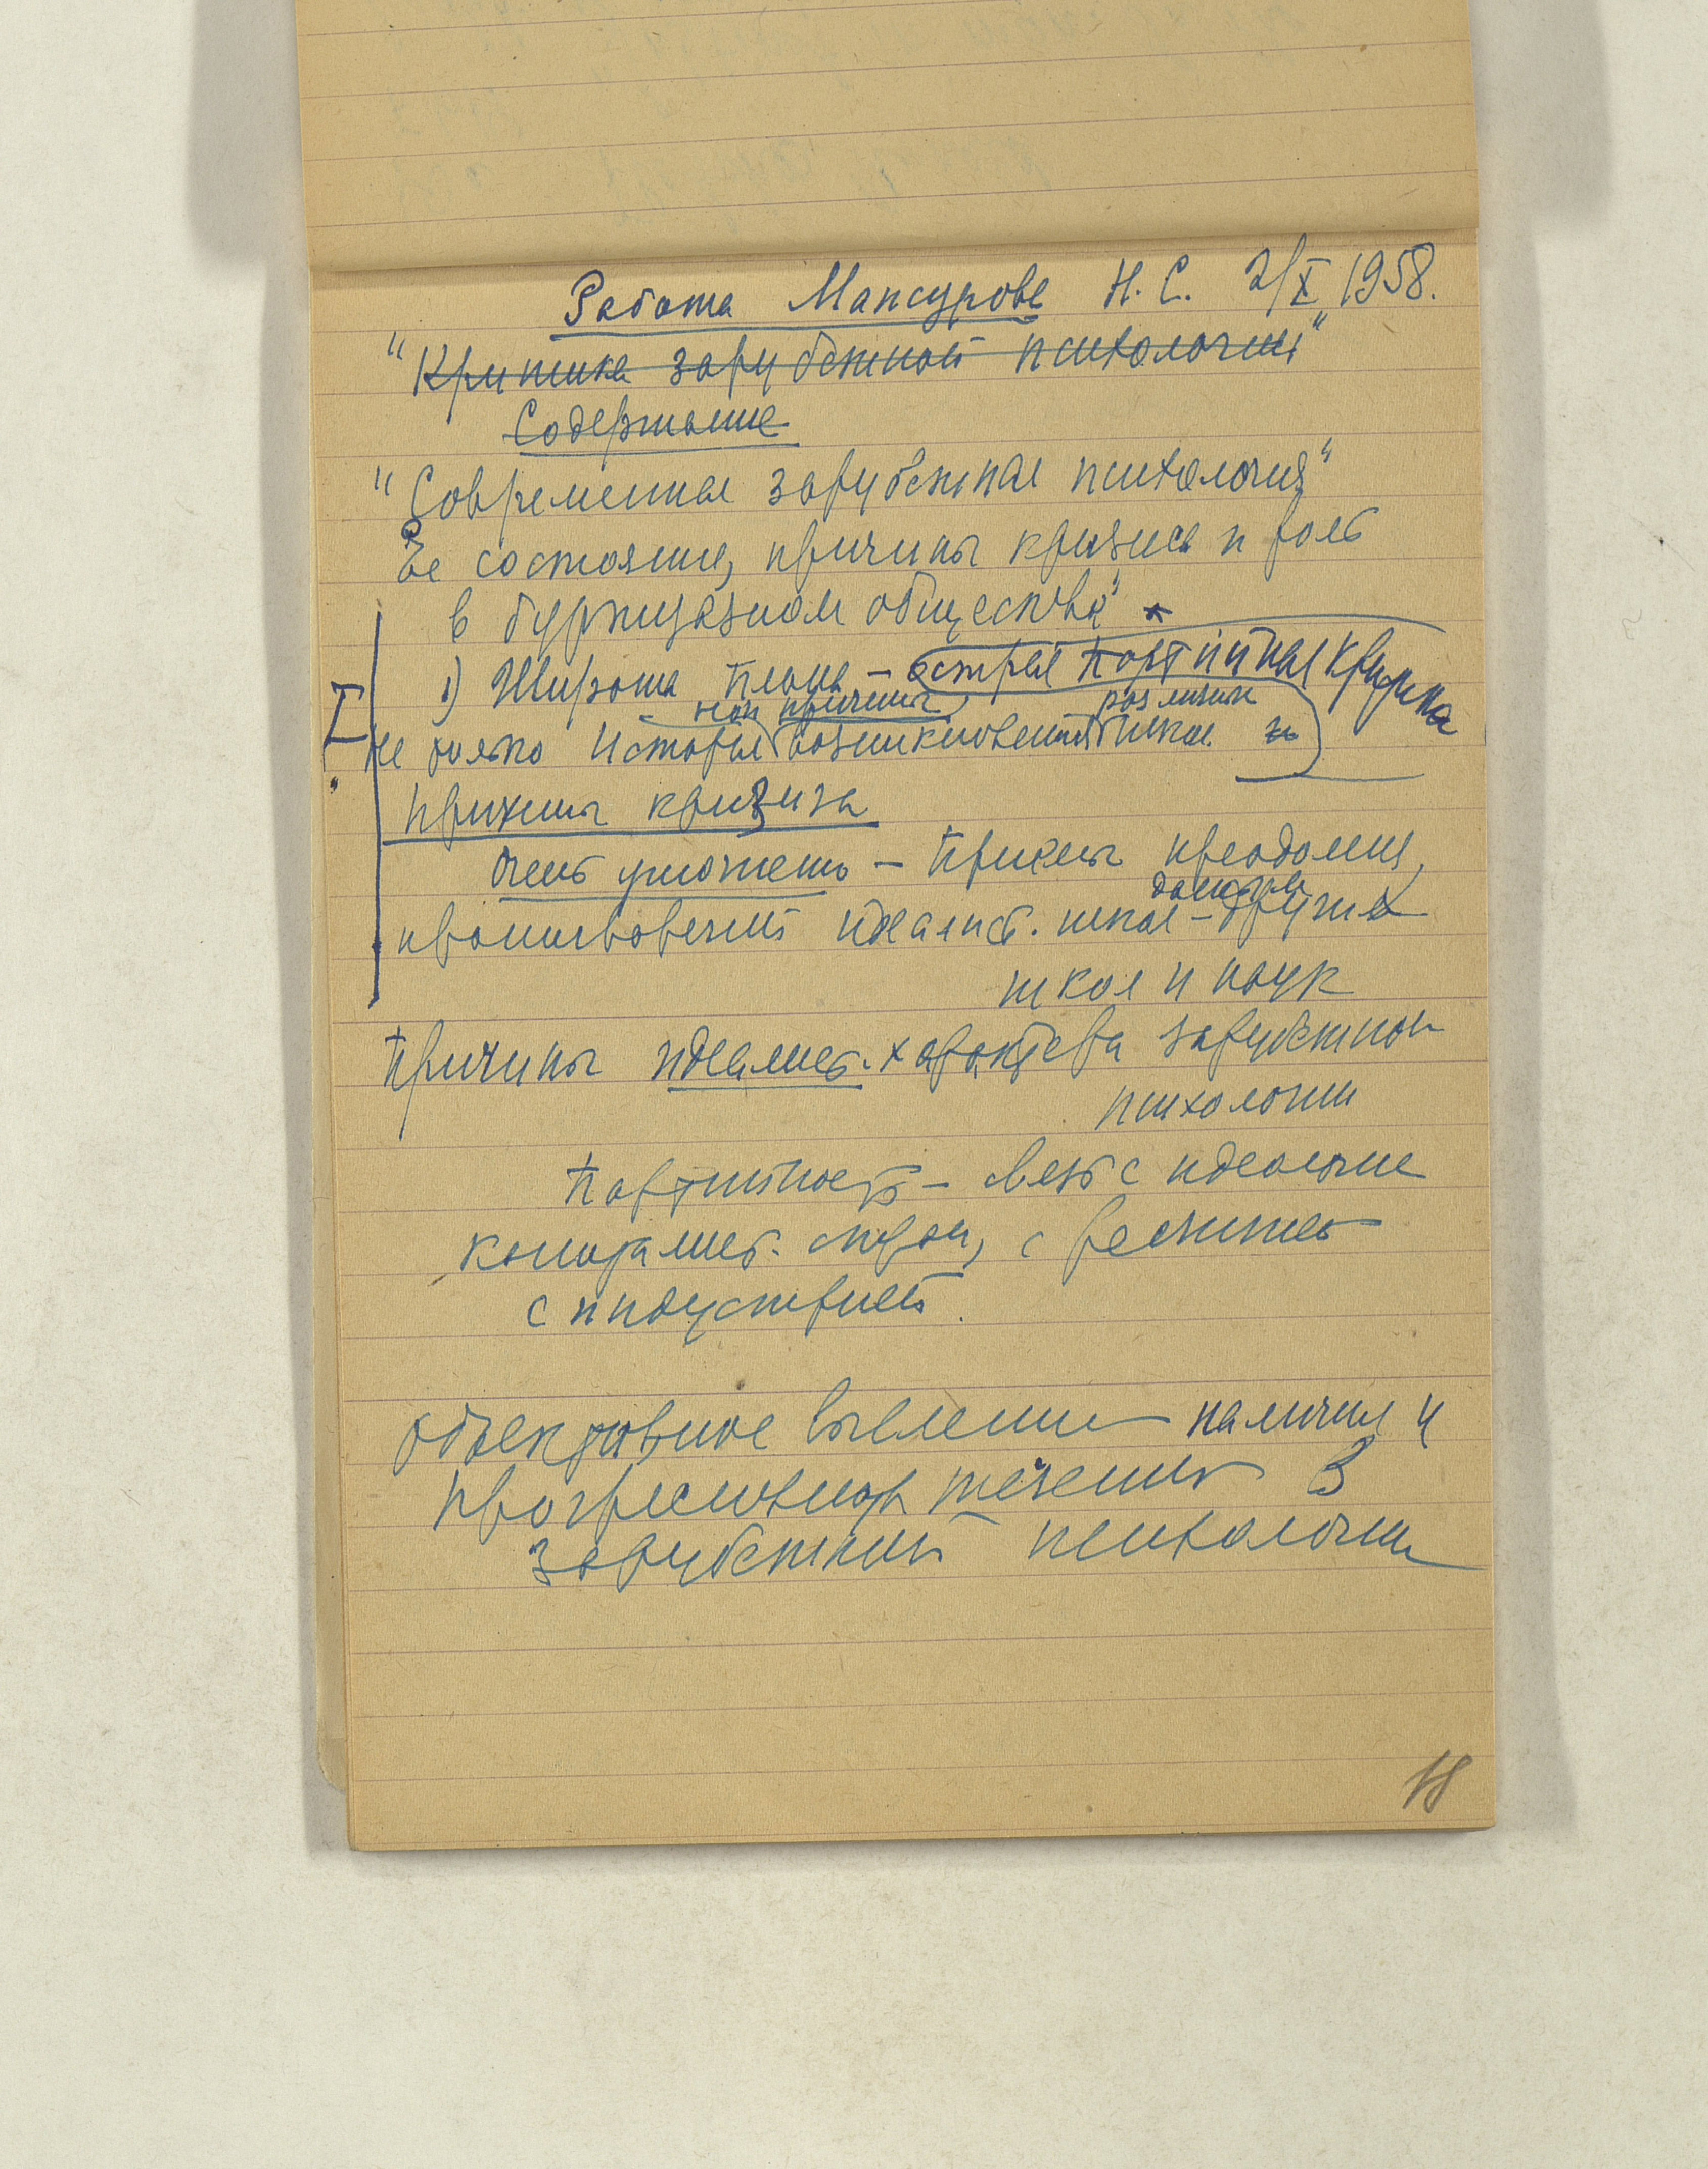 Работа Мансурова Н. С. 2/X 1958.
"Критика зарубежной психологии"
Содержание
"Современная зарубежная психология"
Ее состояние, причины кризиса и роль
в буржуазном обществе" *
1) Широта плана – острая партийная критика
причины, различн
I не только история возникновения школ. и
причины кризиса
Очень уместно – преодолен,
идеалист. школ – других
данными
школ и наук
Причины идеалист. характера зарубежной
психологии
Партийность – связь с идеологие
капиталист. стран, с
с индустрией.
Объективное выявление наличия и
прогрессивного течения в
зарубежной психологии
18